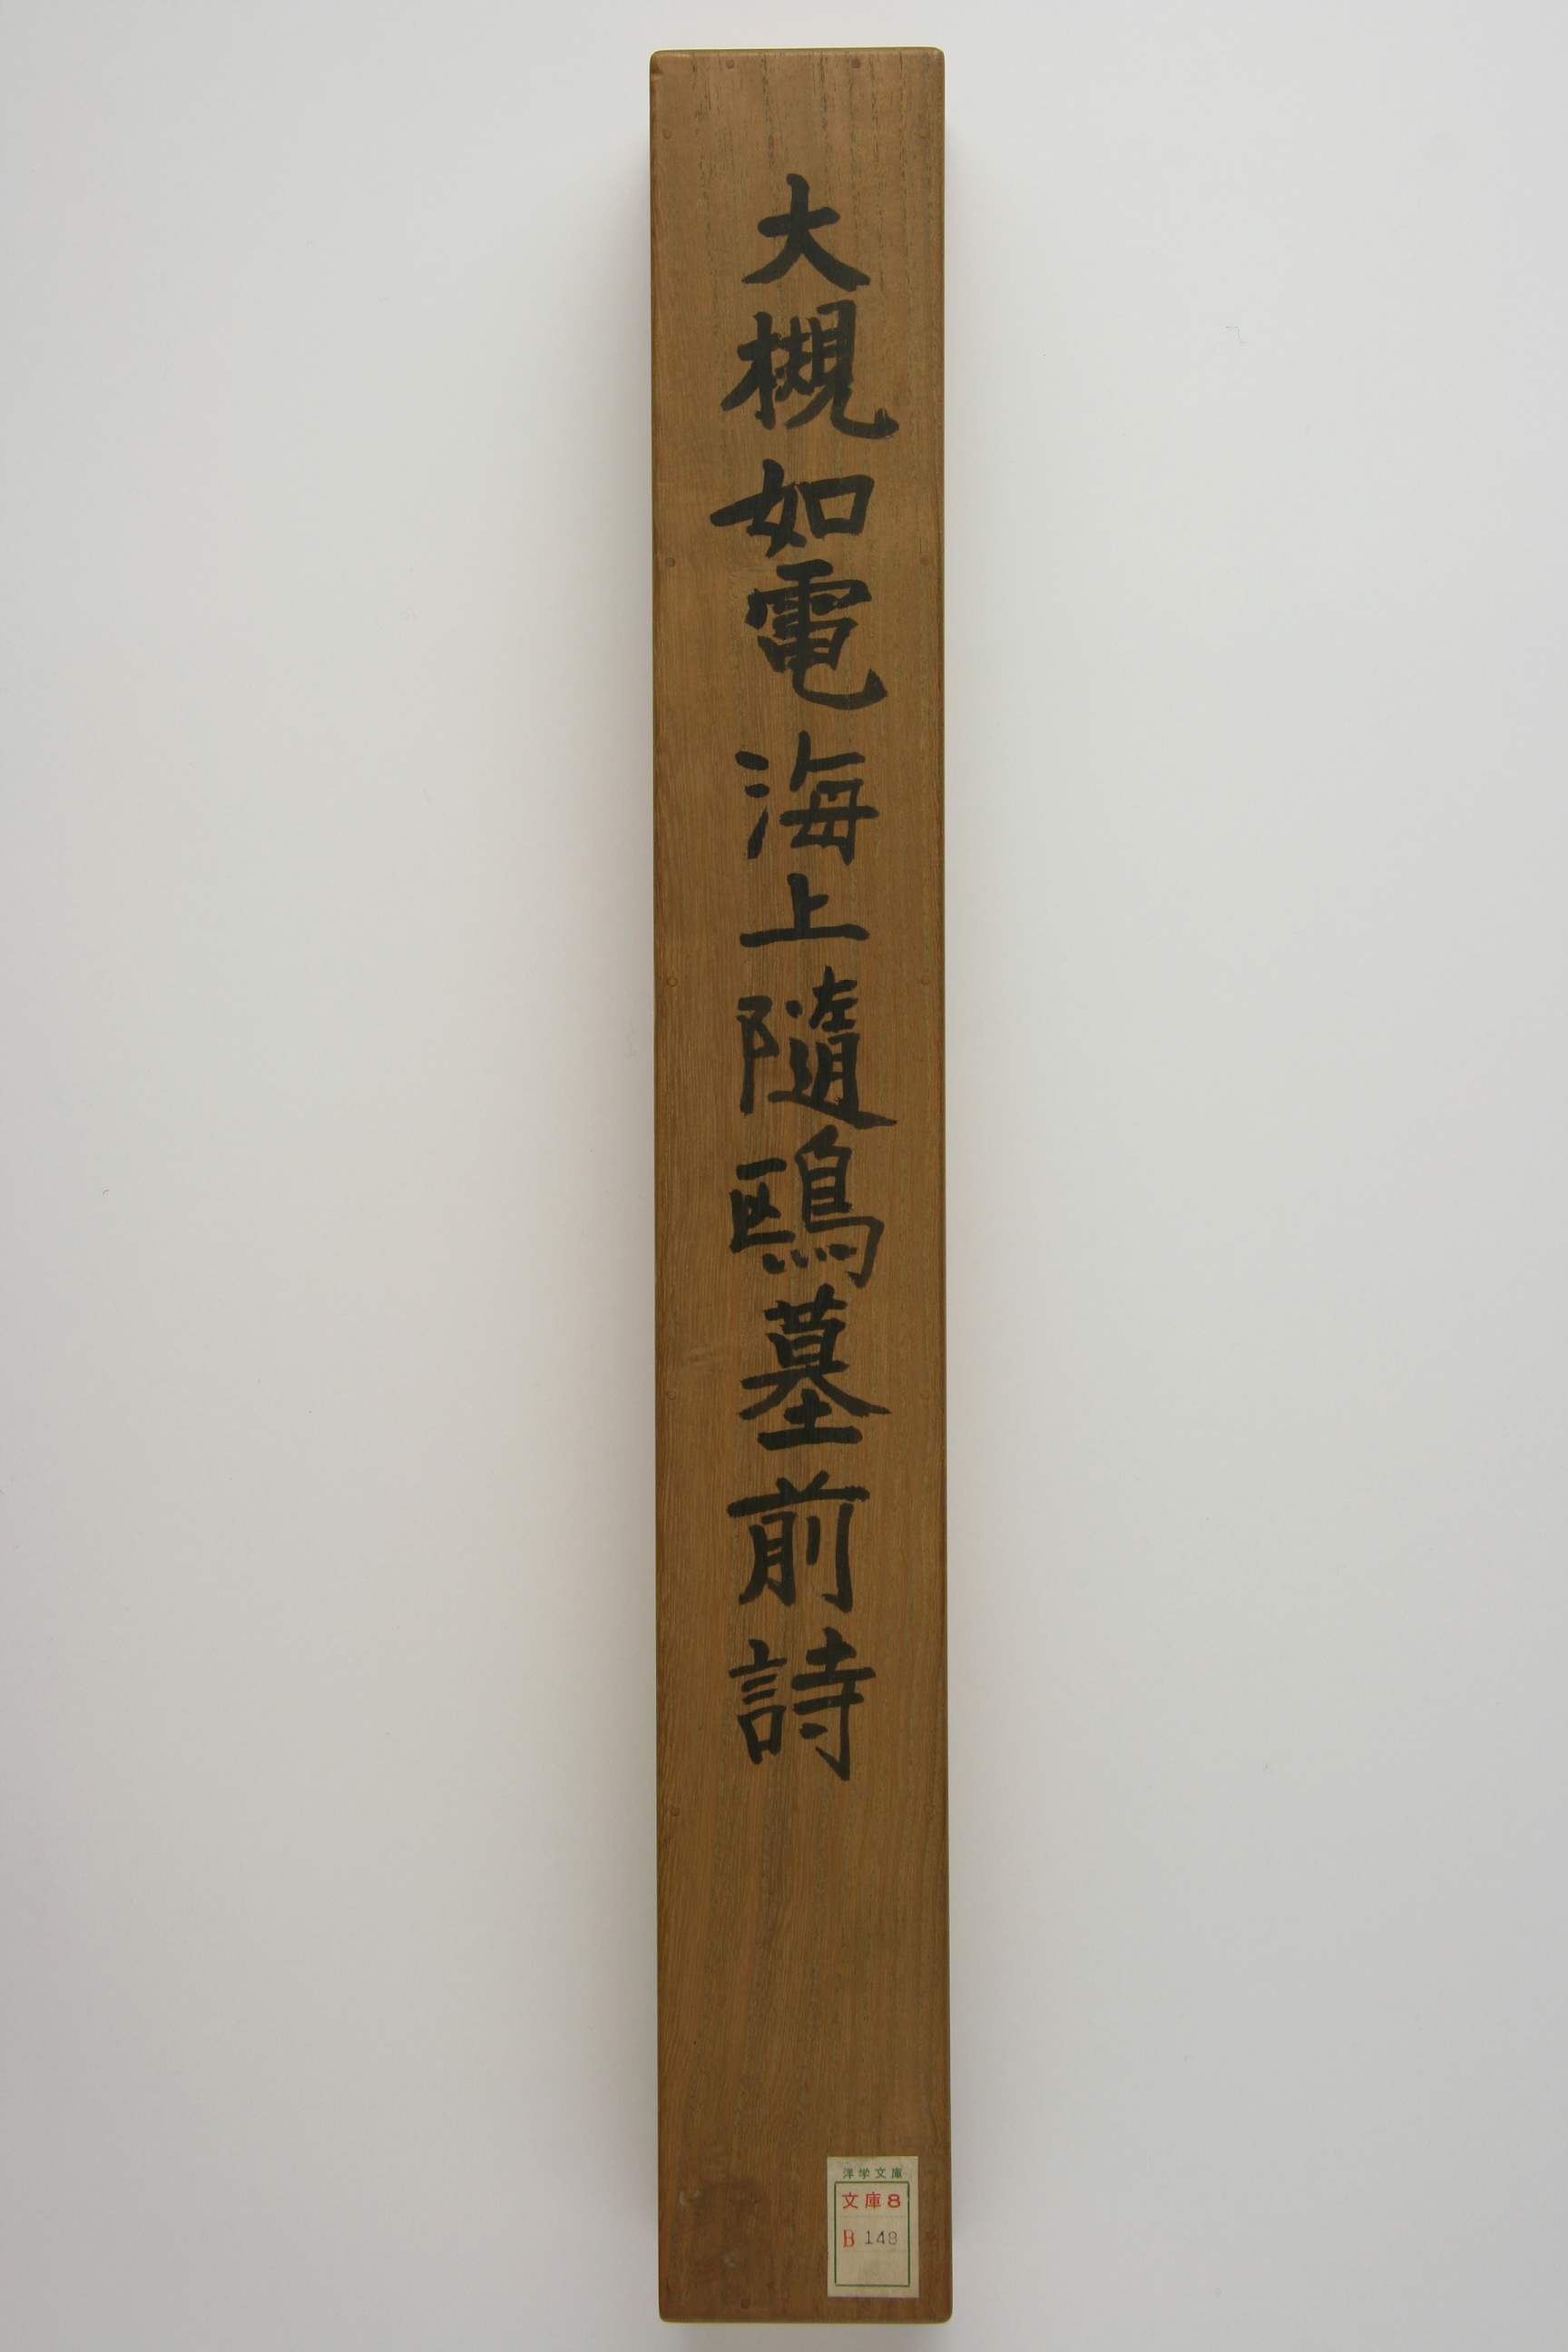 大槻如電海上隨鴎墓前詩
洋学文庫
文庫8
B 148